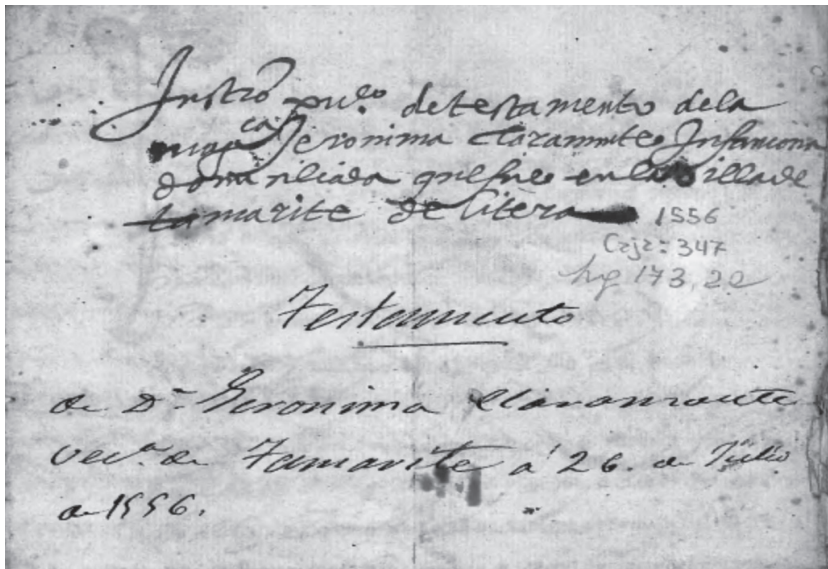 Instro pu.co de testamento dela
mag.ca Jeronima Claramunte Infancona
domiciliada que fue en la Villa de
tamarite de Litera 1556
Caja: 347
173,22
Testamento
de D.ª Geronima Claramonte
vec.ª de Tamarite á 26. de Julio
de 1556.